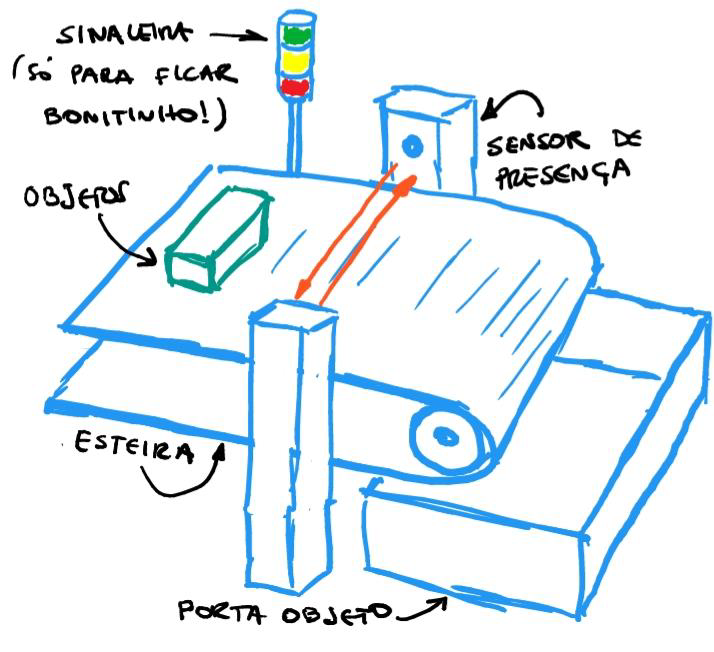 SINALEIRA
(SÓ PARA FICAR
BONITINHO!)
SENSOR DE
PRESENÇA
OBJETOS
ESTEIRA
PORTA OBJETO